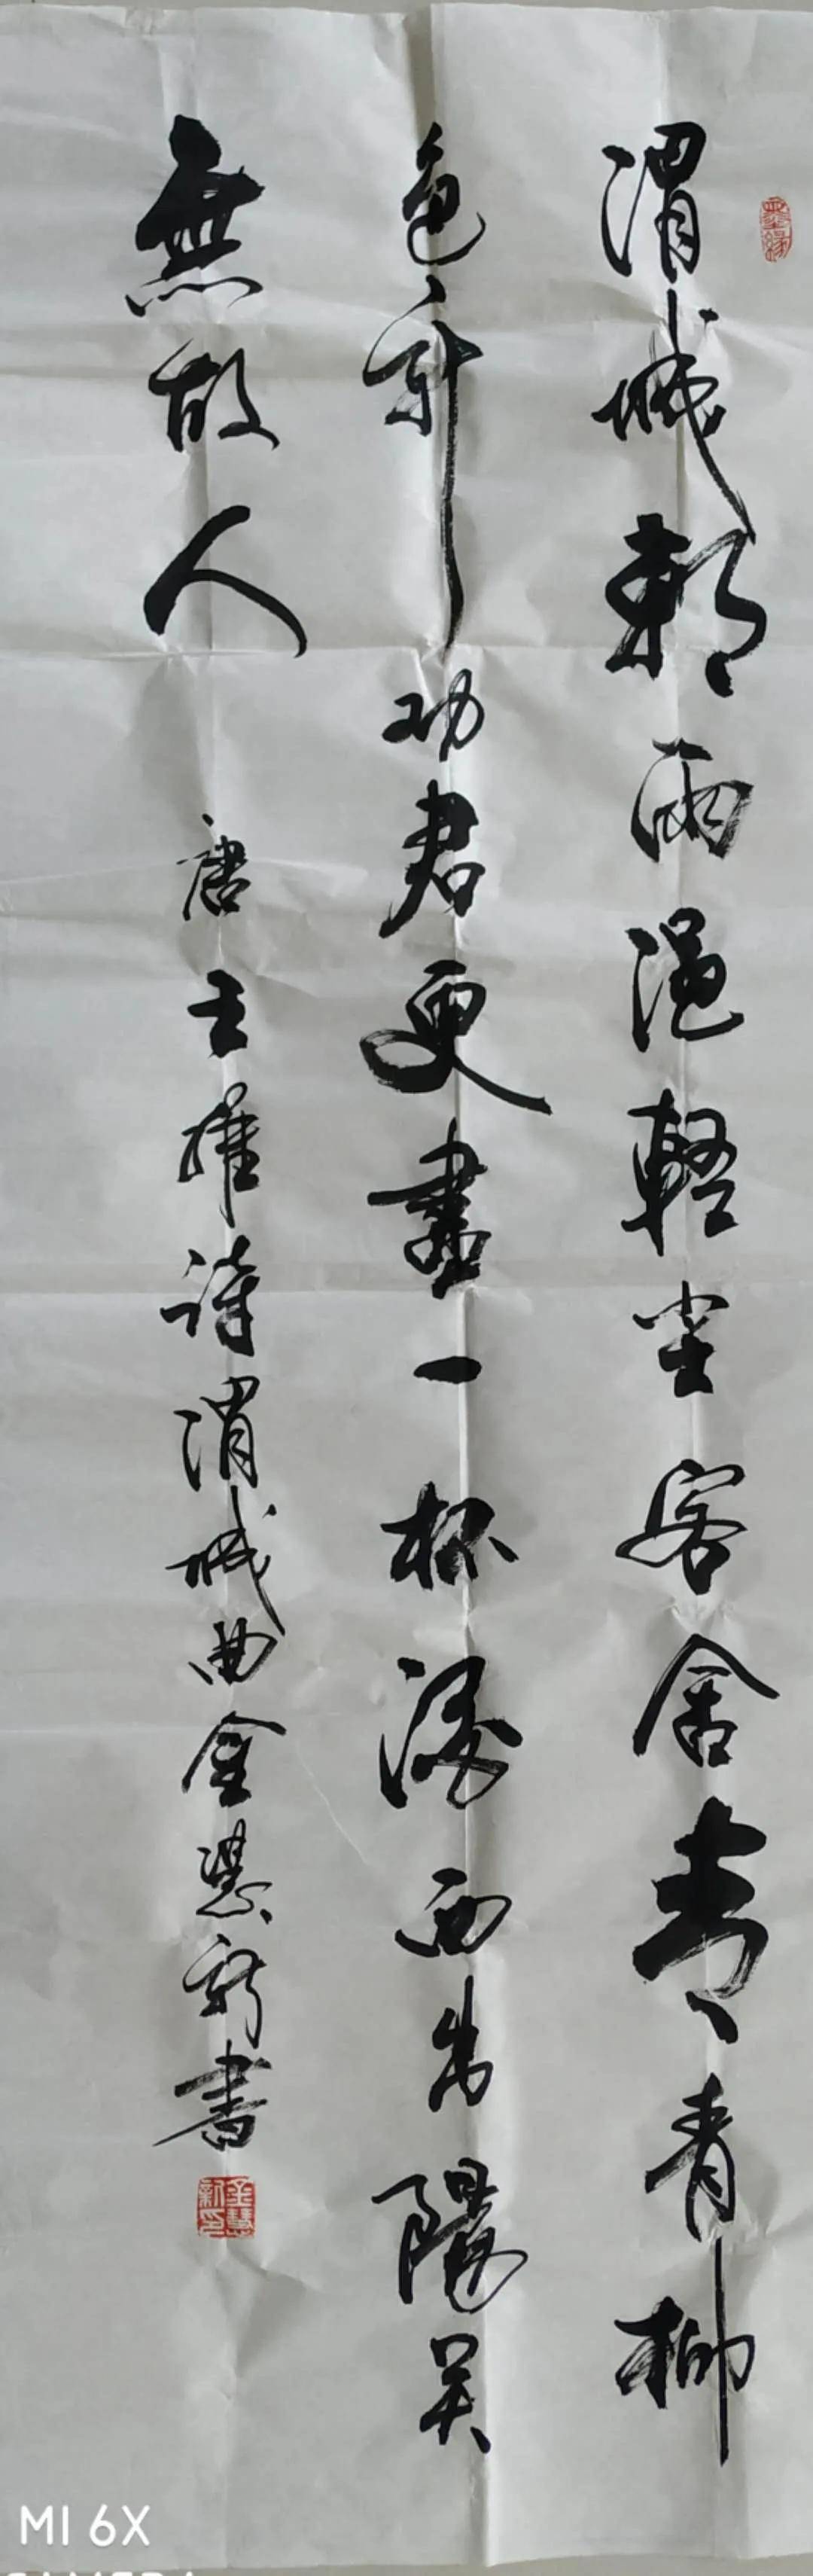 渭城朝雨浥輕尘客舍青青柳
色新劝君更盡一杯酒西出陽关
無故人
唐王維诗渭城曲金慧新書
金慧新印
MI 6X